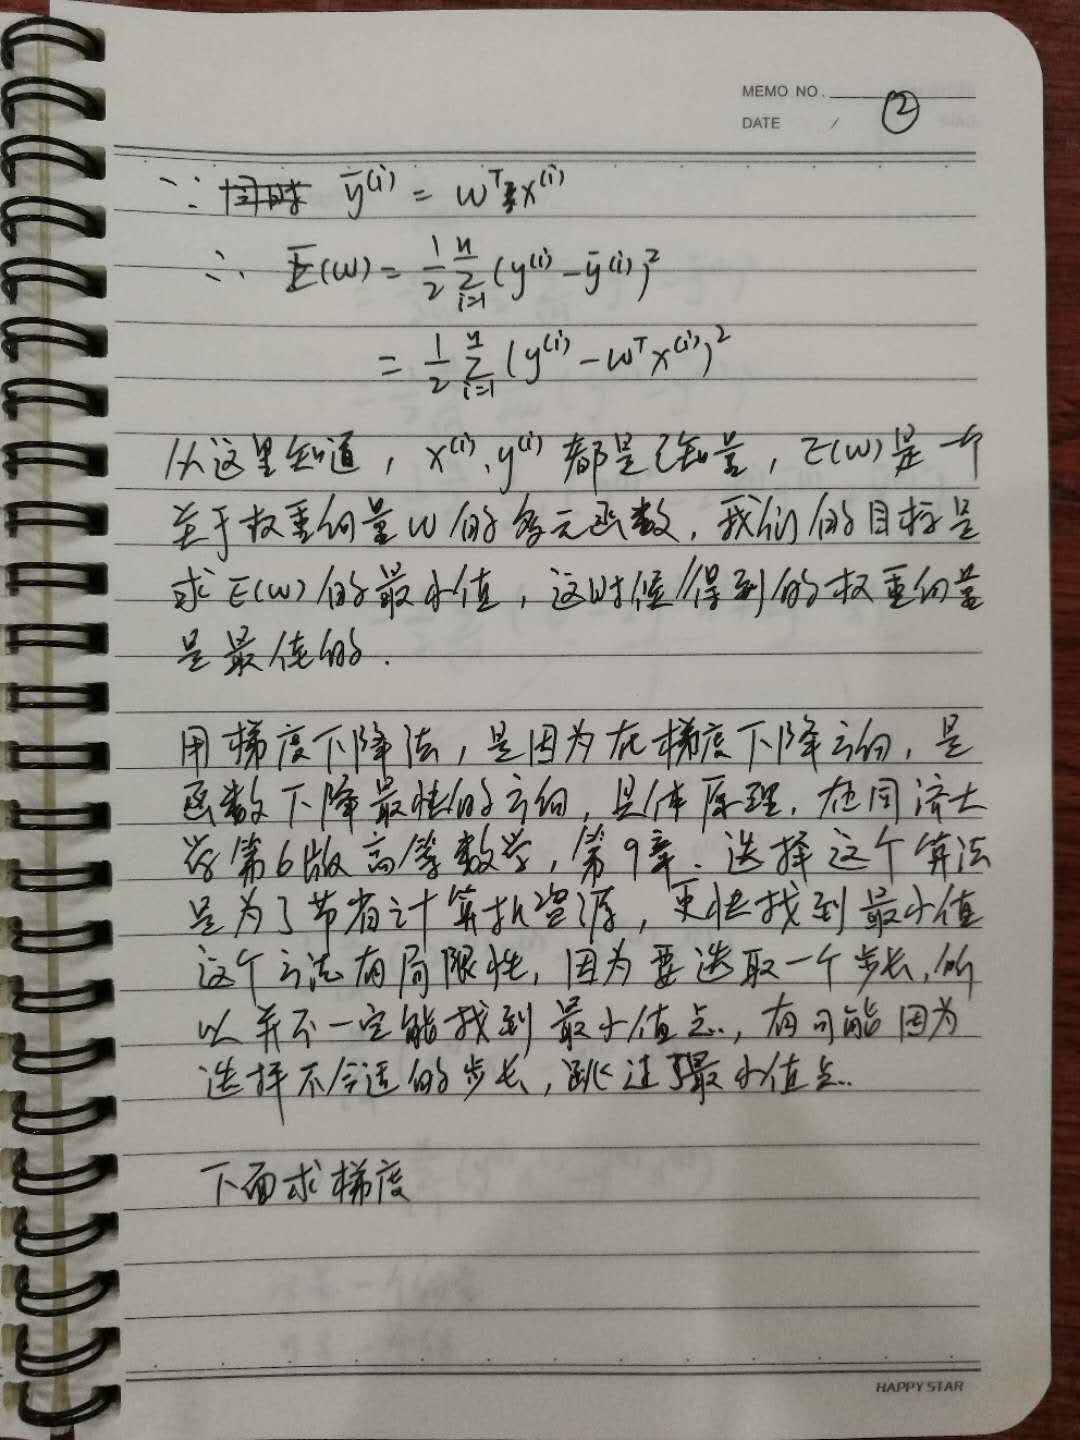 MEMO NO.
DATE / ②
∵ ȳ⁽ⁱ⁾ = wᵀx⁽ⁱ⁾
∴ E(w) = 1/2 Σⁿᵢ₌₁ (y⁽ⁱ⁾ - ȳ⁽ⁱ⁾)²
= 1/2 Σⁿᵢ₌₁ (y⁽ⁱ⁾ - wᵀx⁽ⁱ⁾)²
从这里知道，x⁽ⁱ⁾、y⁽ⁱ⁾都是已知量，E(w)是一个
关于权重向量w的多元函数，我们的目标是
求E(w)的最小值，这时候得到的权重向量
是最佳的.
用梯度下降法，是因为在梯度下降方向，是
函数下降最快的方向，具体原理，在同济大
学第6版高等数学，第9章. 选择这个算法
是为了节省计算机资源，更快找到最小值
这个方法有局限性，因为要选取一个步长，所
以并不一定能找到最小值点，有可能因为
选择不合适的步长，跳过了最小值点.
下面求梯度
HAPPY STAR